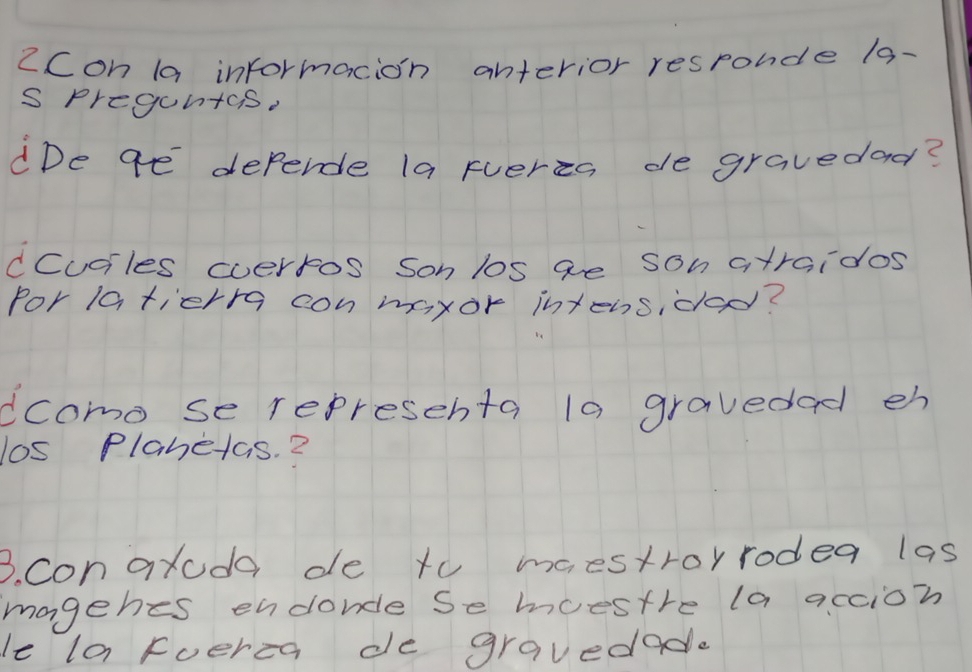 2 Con la información anterior responde la-
s preguntas.
¿De qé depende la fuerza de gravedad?
¿Cuáles cuerpos son los qe son atraídos
Por la tierra con mayor intensidad?
¿como se representa la gravedad en
los Planetas.?
3. con ayuda de tu maestroy rodea las
imagenes endonde se muestre la acción
de la fuerza de gravedad.